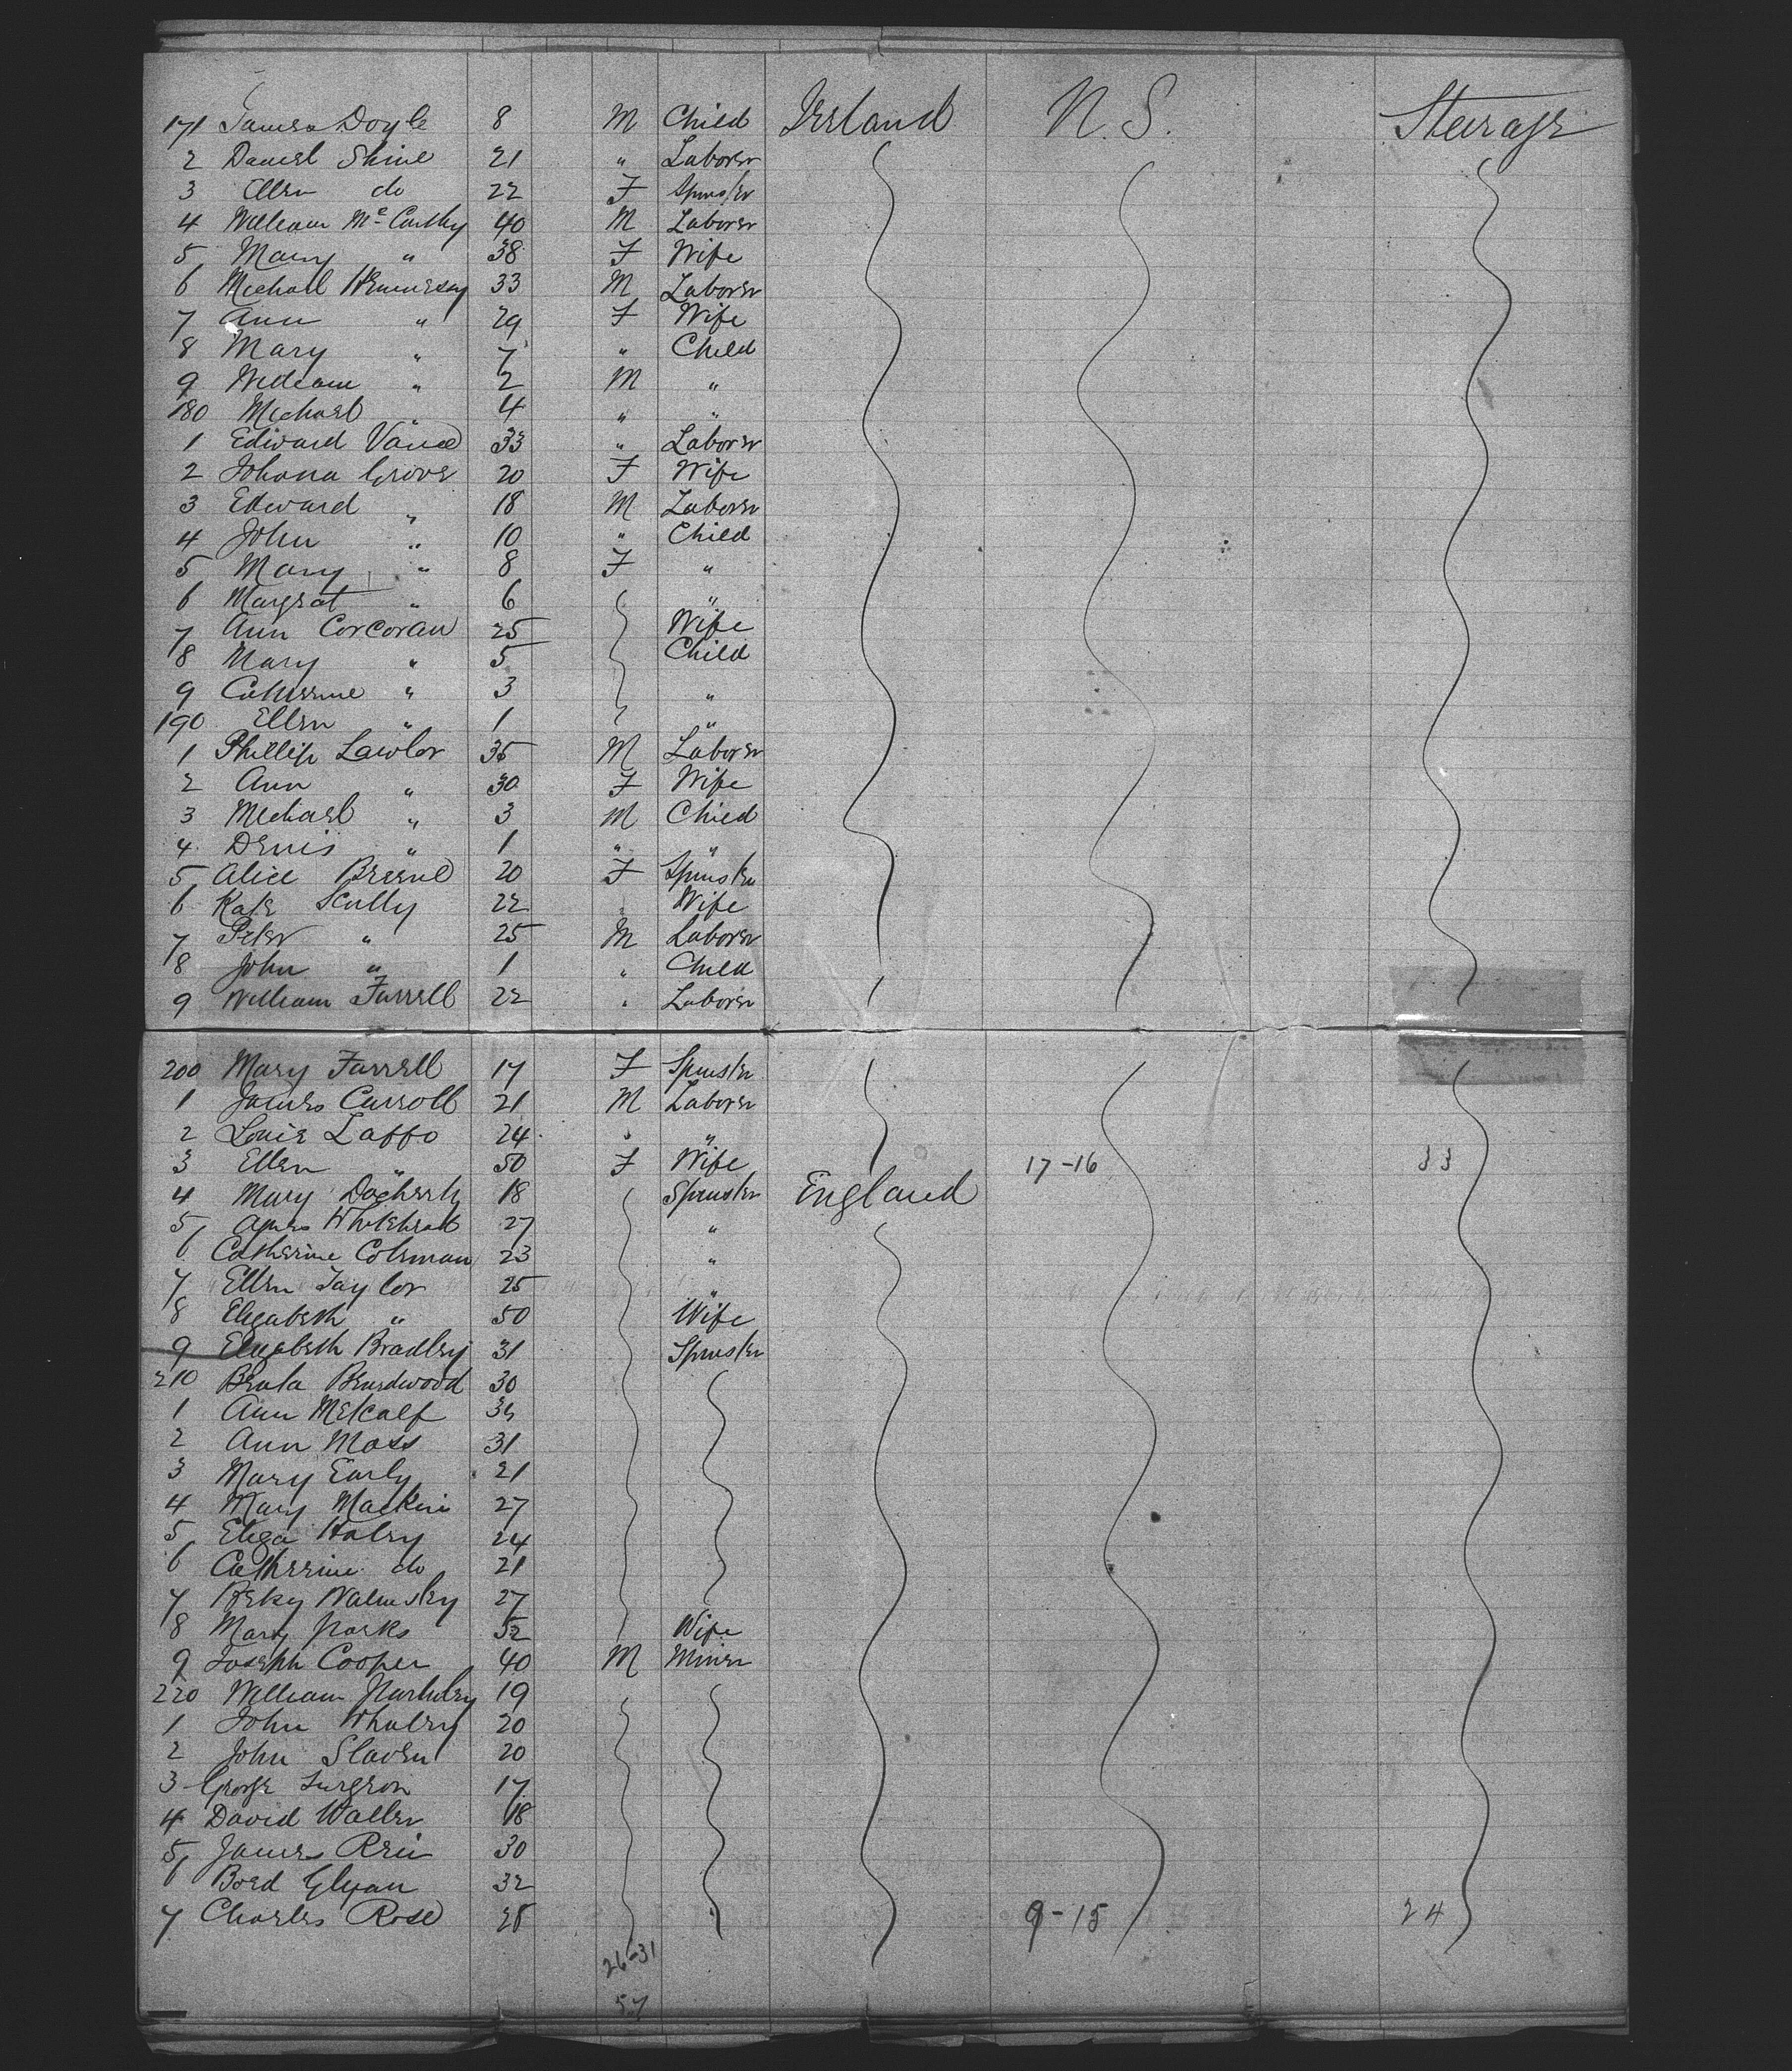 171 James Doyle 8 M Child Ireland N. S. Steerage
2 Daniel Shine 21 " Laborer
3 Ellen do 22 F Spinster
4 William Mc Carthy 40 M Laborer
5 Mary " 38 F Wife
6 Michael Hennessy 33 M Laborer
7 Ann " 29 F Wife
8 Mary " 7 " Child
9 William " 2 M "
180 Michael " 4 " "
1 Edward Vance 33 " Laborer
2 Johana Grove 20 F Wife
3 Edward " 18 M Laborer
4 John " 10 " Child
5 Mary " 8 F "
6 Margret " 6 "
7 Ann Corcoran 25 Wife
8 Mary " 5 Child
9 Catherine " 3 "
190 Ellen " 1 "
1 Phillip Lawlor 35 M Laborer
2 Ann " 30 F Wife
3 Michael " 3 M Child
4 Denis " 1 " "
5 Alice Breene 20 F Spinster
6 Kate Scully 22 " Wife
7 Peter " 25 M Laborer
8 John " 1 " Child
9 William Farrell 22 " Laborer
200 Mary Farrell 17 F Spinster
1 James Carroll 21 M Laborer
2 Louie Laffo 24 " "
3 Ellen " 50 F Wife 17-16 33
4 Mary Docherty 18 Spinster England
5 Agnes Whitehead 27 "
6 Catherine Coleman 23 "
7 Ellen Taylor 25 "
8 Elizabeth " 50 Wife
9 Elizabeth Bradley 31 Spinster
210 30
1 Ann Metcalf
2 Ann Moss 31
3 Mary Early 21
4 Mary Mackin 27
5 Eliza Haley 24
6 Catherine do 21
7 Walmsley 27
8 Mary Parks 52 Wife
9 Joseph Cooper 40 M Miner
220 William 19
1 John Whaley 20
2 John Slaven 20
3 George Surgeon 17
4 David Waller 18
5 James 30
6 32
7 Charles Rose 28 9-15 24
26-31
57